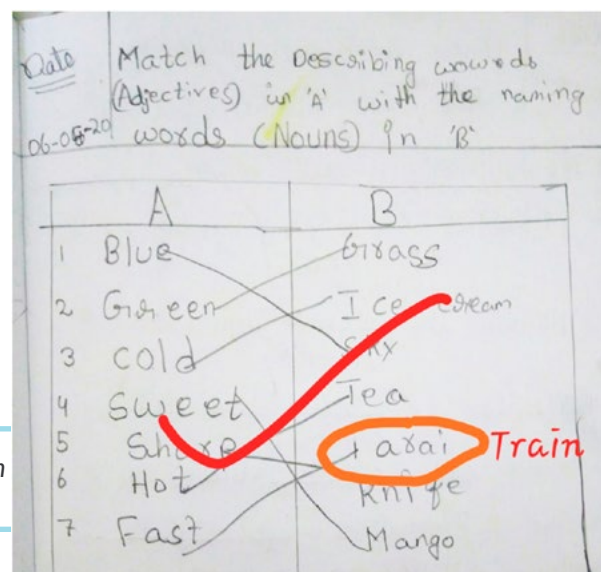 Date
06-05-20
Match the Describing wowrds
(Adjectives) in 'A' with the naming
words (Nouns) in 'B'
A B
1 Blue Grass
2 Green Ice cream
3 Cold Sky
4 Sweet Tea
5 Share Tarai Train
6 Hot Knife
7 Fast Mango